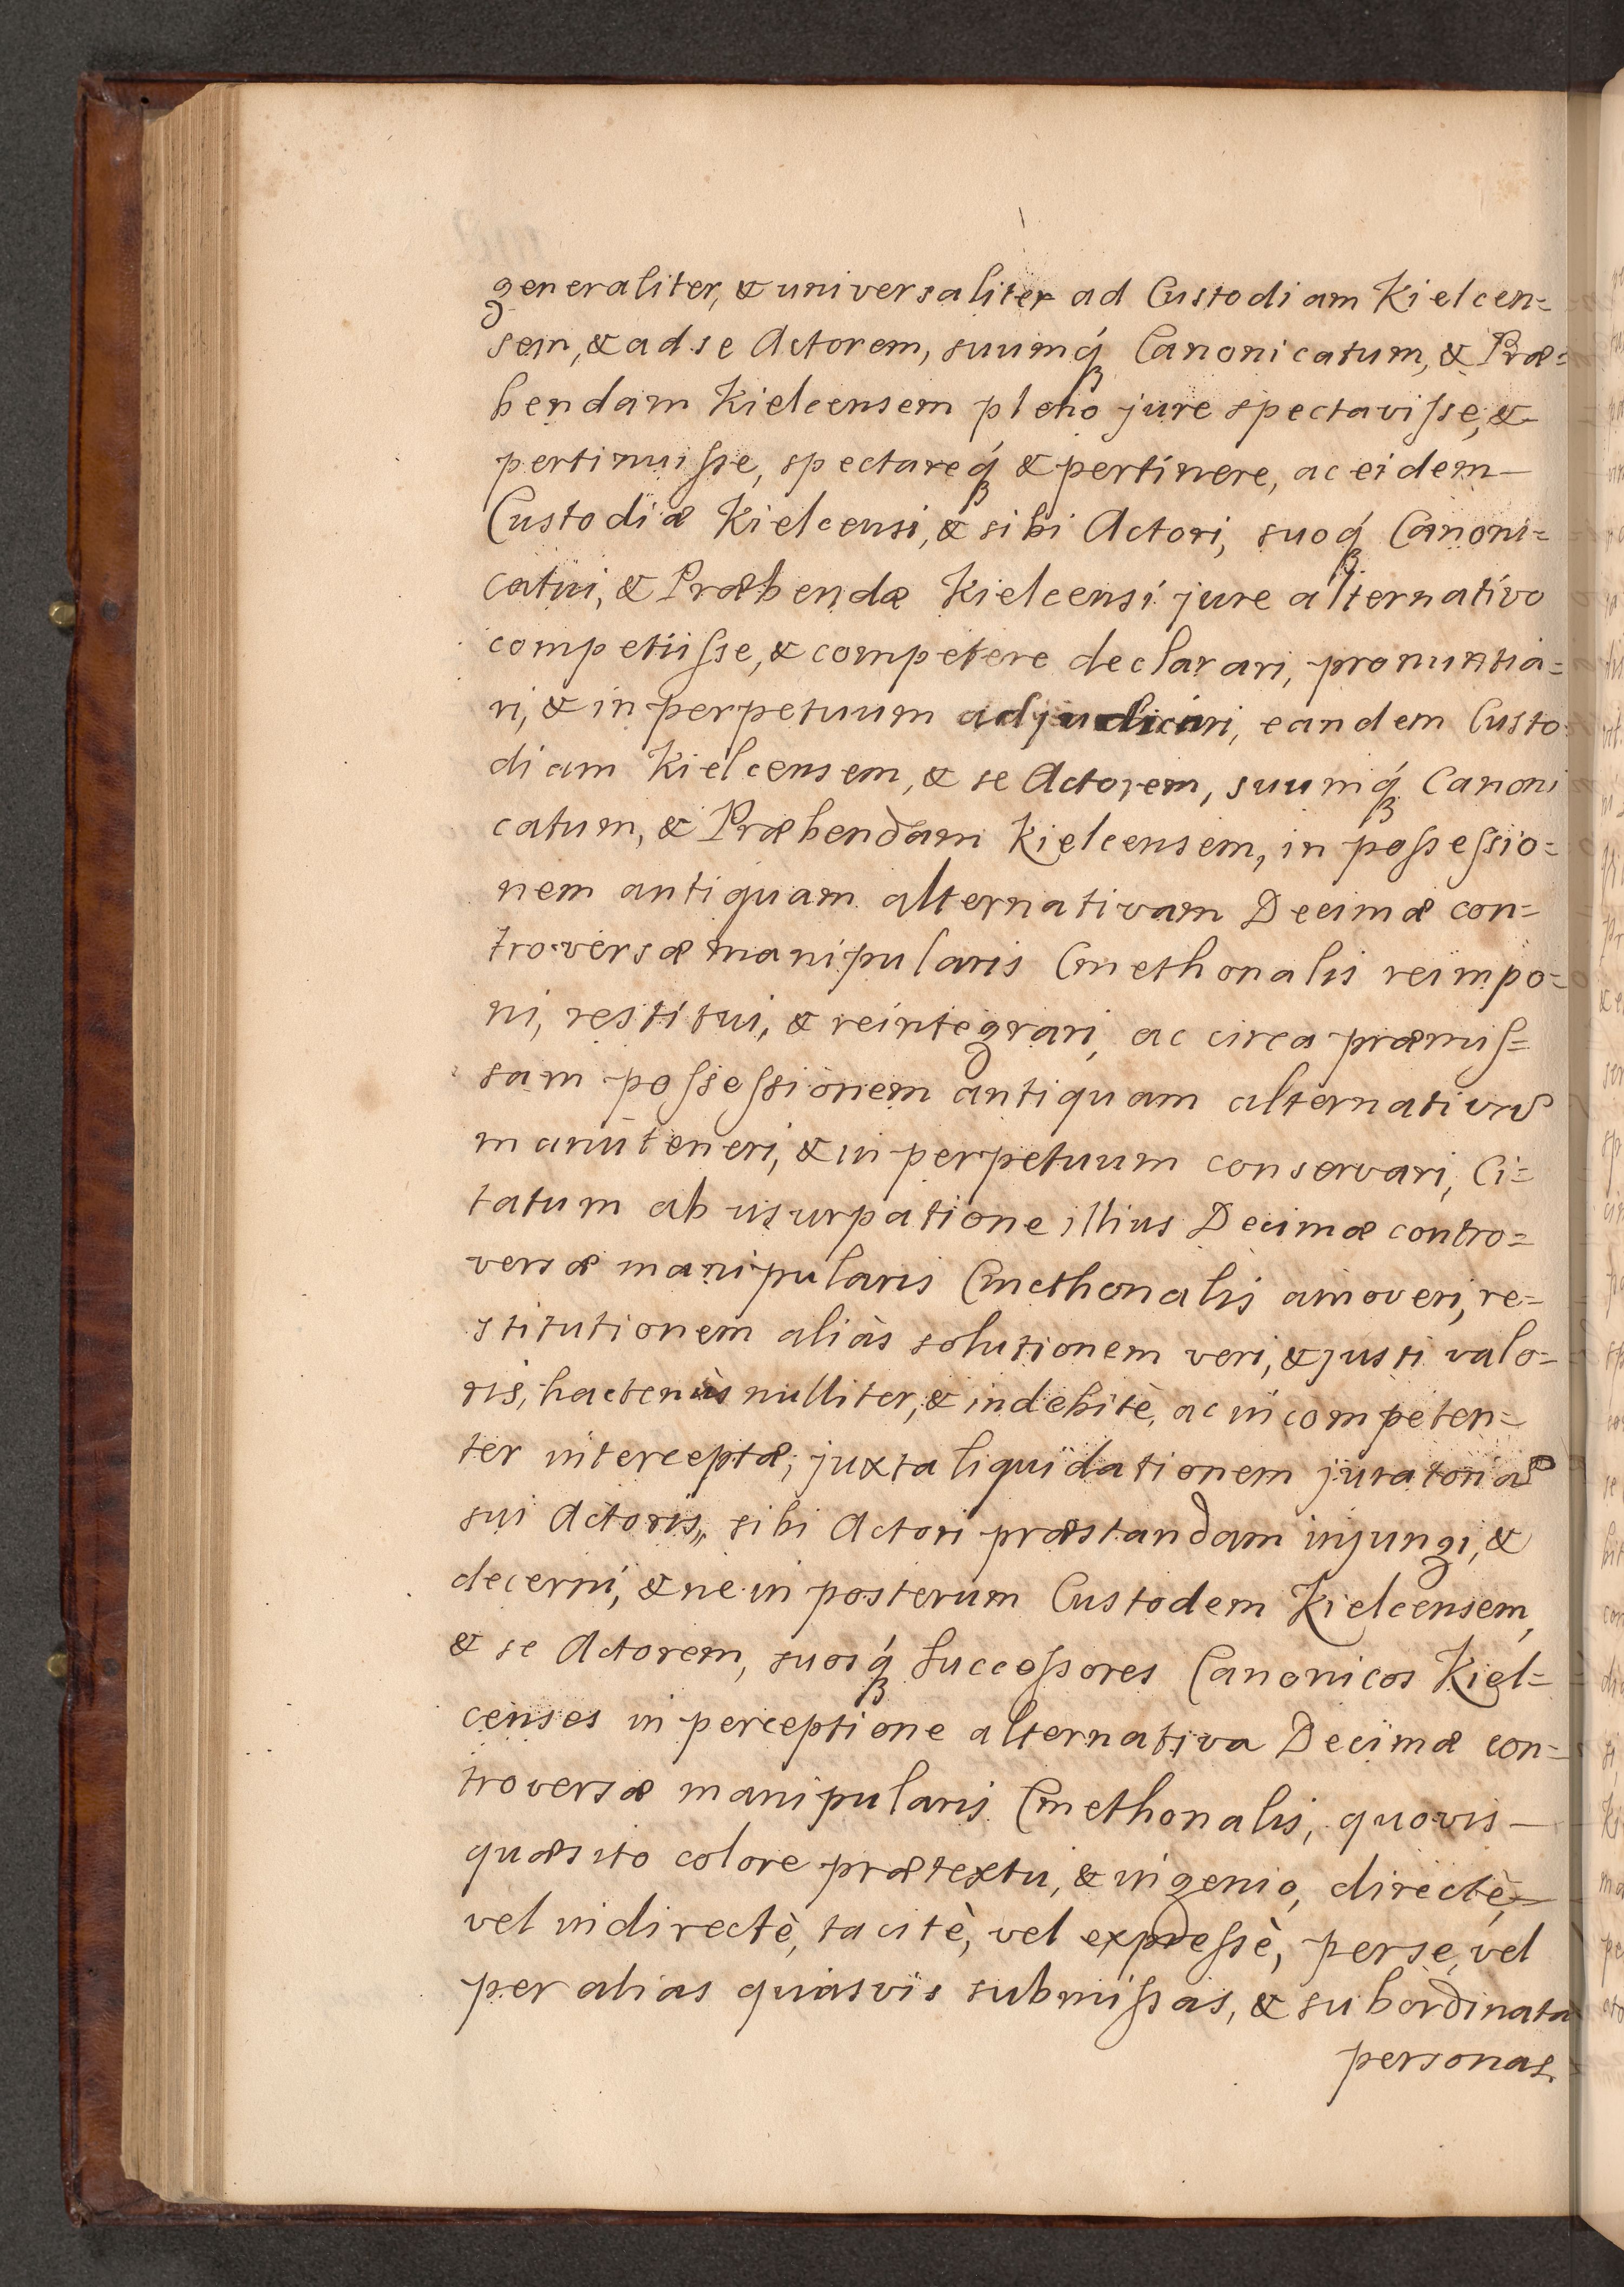 generaliter, & universaliter ad Custodiam Kielcen=
sem, & ad se Actorem, suumq́ꝫ Canonicatum, & Præ=
bendam Kielcensem pleno jure spectaviſse, &
pertinuiſse, spectareq́ꝫ & pertinere, ac eidem—
Custodiæ Kielcensi, & sibi Actori, suoq́ꝫ Canoni=
catui, & Præbendæ Kielcensi jure alternativo
competiiſse, & competere declarari, pronuntia=
ri, & in perpetuum adjudicari, eandem Custo=
diam Kielcensem, & se Actorem, suumq́ꝫ Canoni
catum, & Præbendam Kielcensem, in poſseſsio=
nem antiquam alternativam Decimæ con=
troversæ manipularis Cmethonalis reimpo=
ni, restitui, & reintegrari, ac circa præmiſ=
sam poſseſsionem antiquam alternativã
manuteneri, & in perpetuum conservari, Ci=
tatum ab usurpatione illius Decimæ contro=
versæ manipularis Cmethonalis amoveri, re=
stitutionem aliàs solutionem veri, & justi valo=
ris, hactenùs nulliter, & indebitè, ac incompeten=
ter interceptæ, juxta liquidationem juratoriã
sui Actoris, sibi Actori præstandam injungi, &
decerni, & ne in posterum Custodem Kielcensem,
& se Actorem, suosq́ꝫ Succeſsores Canonicos Kiel=
censes in perceptione alternativa Decimæ con=
troversæ manipularis Cmethonalis, quovis—
quæsito colore prætextu, & ingenio, directè,—
vel indirectè, tacitè, vel expreſsè, per se, vel
per alias quasvis submiſsas, & subordinata
personas